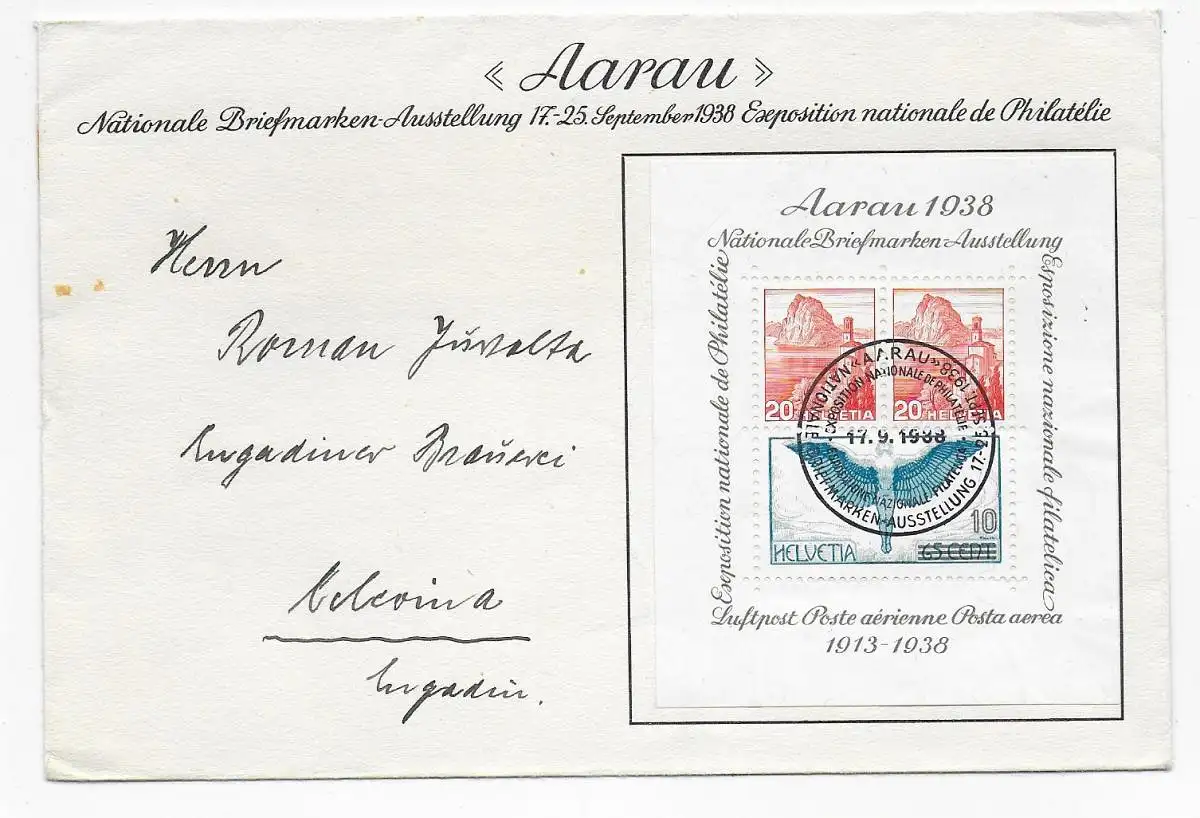 « Aarau »
Nationale Briefmarken-Ausstellung 17.-25. September 1938 Exposition nationale de Philatélie
Herrn
Roman Juvalta
Engadiner Brauerei
Celerina
Engadin.
Aarau 1938
Nationale Briefmarken-Ausstellung
Exposition nationale de Philatélie
Esposizione nazionale filatelica
20 HELVETIA
20 HELVETIA
«AARAU»
NATIONALE BRIEFMARKEN-AUSSTELLUNG 17.-25. SEPT. 1938
EXPOSITION NATIONALE DE PHILATÉLIE
17.9.1938
ESPOSIZIONE NAZIONALE FILATELICA
10
HELVETIA 65 CENT
Luftpost Poste aérienne Posta aerea
1913-1938